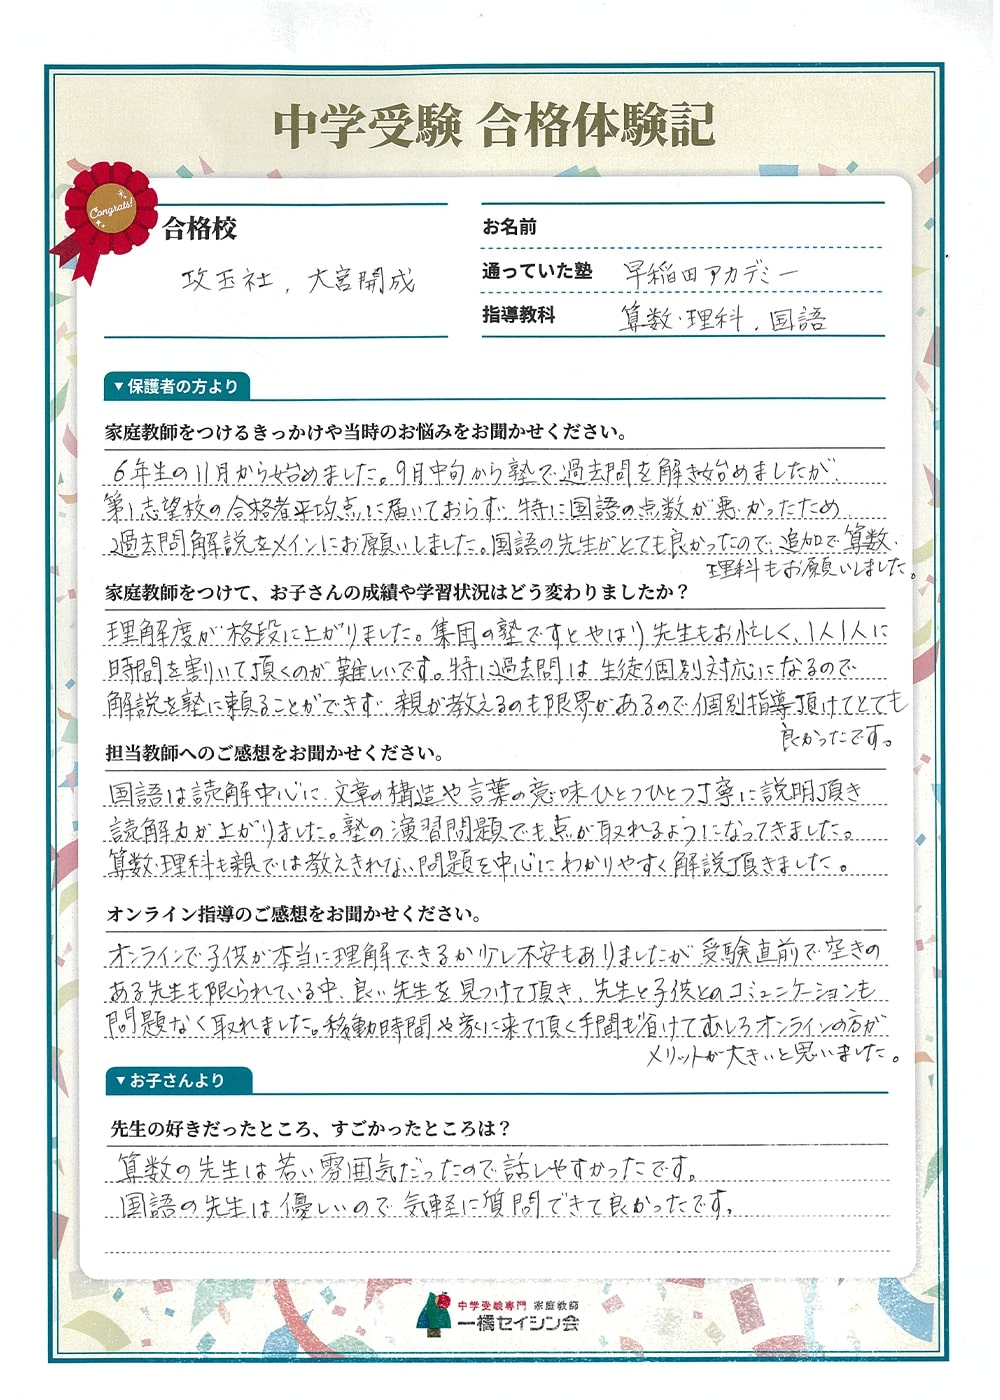 中学受験 合格体験記
Congrats!
合格校
攻玉社、大宮開成
お名前
通っていた塾 早稲田アカデミー
指導教科 算数・理科、国語
▼保護者の方より
家庭教師をつけるきっかけや当時のお悩みをお聞かせください。
6年生の11月から始めました。9月中旬から塾で過去問を解き始めましたが、
第1志望校の合格者平均点に届いておらず、特に国語の点数が悪かったため
過去問解説をメインにお願いしました。国語の先生がとても良かったので、追加で算数・
理科もお願いしました。
家庭教師をつけて、お子さんの成績や学習状況はどう変わりましたか？
理解度が格段に上がりました。集団の塾ですとやはり先生もお忙しく、1人1人に
時間を割いて頂くのが難しいです。特に過去問は生徒個別対応になるので
解説を塾に頼ることができず、親が教えるのも限界があるので個別指導頂けてとても
良かったです。
担当教師へのご感想をお聞かせください。
国語は読解中心に、文章の構造や言葉の意味ひとつひとつ丁寧に説明頂き
読解力が上がりました。塾の演習問題でも点が取れるようになってきました。
算数・理科も親では教えきれない問題を中心にわかりやすく解説頂きました。
オンライン指導のご感想をお聞かせください。
オンラインで子供が本当に理解できるか少し不安もありましたが受験直前で空きの
ある先生も限られている中、良い先生を見つけて頂き、先生と子供とのコミュニケーションも
問題なく取れました。移動時間や家に来て頂く手間も省けてむしろオンラインの方が
メリットが大きいと思いました。
▼お子さんより
先生の好きだったところ、すごかったところは？
算数の先生は若い雰囲気だったので話しやすかったです。
国語の先生は優しいので気軽に質問できて良かったです。
中学受験専門 家庭教師
一橋セイシン会